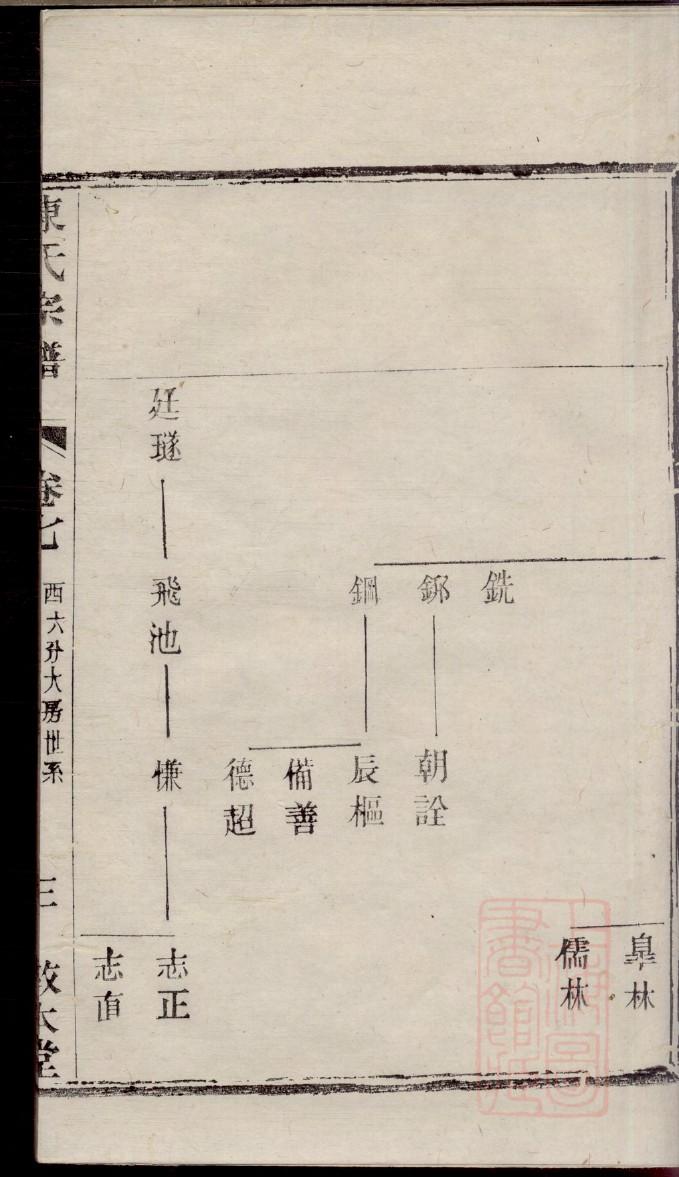 皐林
儒林
銑
鄒
朝詮
鋼
辰樞
備善
德超
廷璲
飛池
慊
志正
志直
陳氏宗譜
卷七
西六分大房世系
三
敦本堂
上海圖書館藏